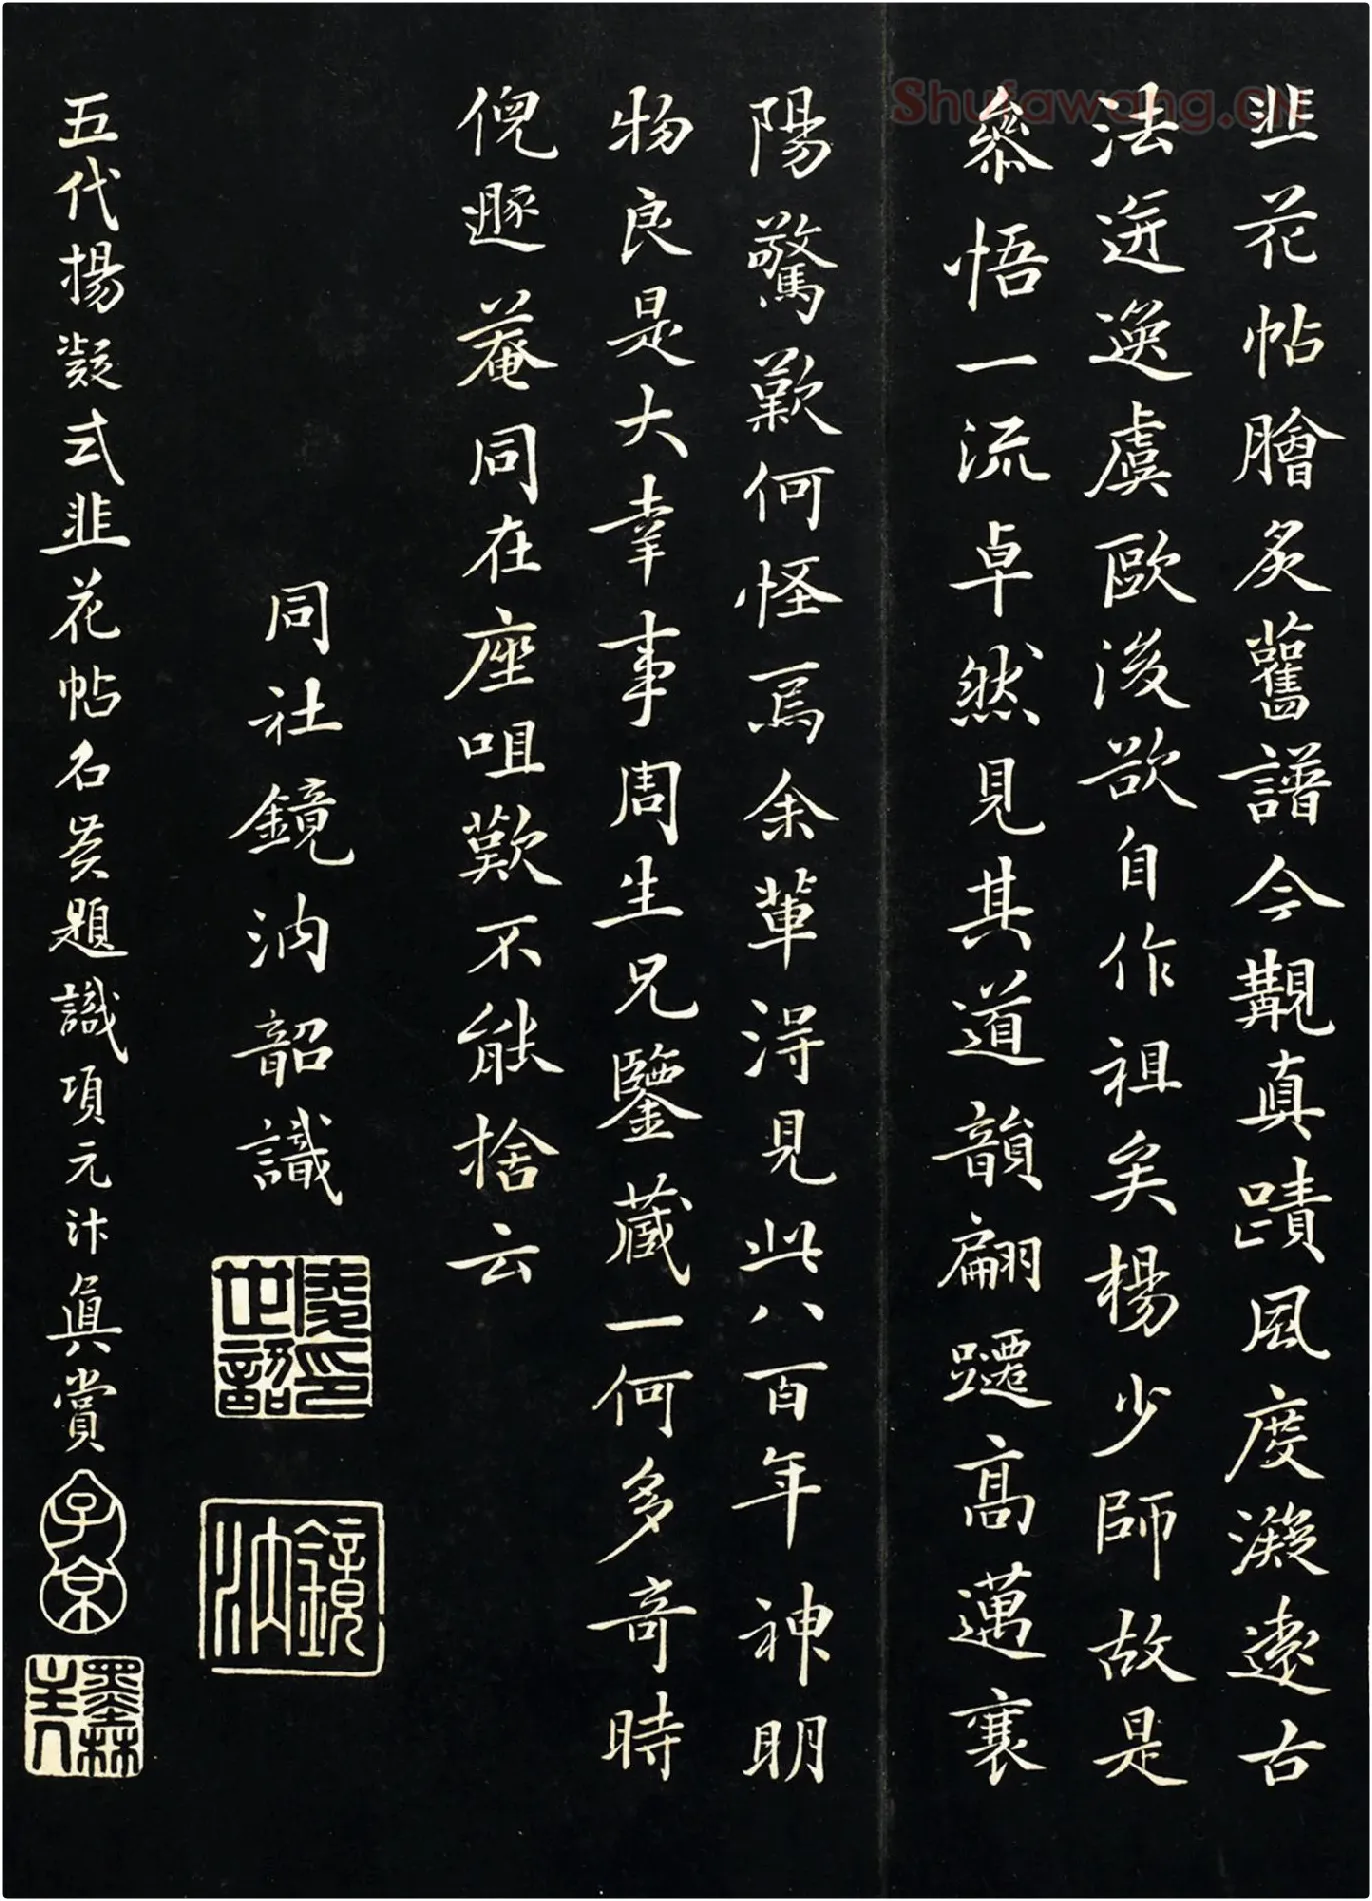 Shufawang.CN
韭花帖膾炙舊譜今覯真蹟風度凝遠古
法迸逸虞歐後欲自作祖矣楊少師故是
參悟一流卓然見其道韻翩躚高邁襄
陽驚歎何怪焉余輩得見此八百年神明
物良是大幸事周生兄鑒藏一何多奇時
倪遯菴同在座咀歎不能捨云
同社鏡汭韶識
鏡汭
五代楊凝式韭花帖名賢題識項元汴真賞
子京
墨林